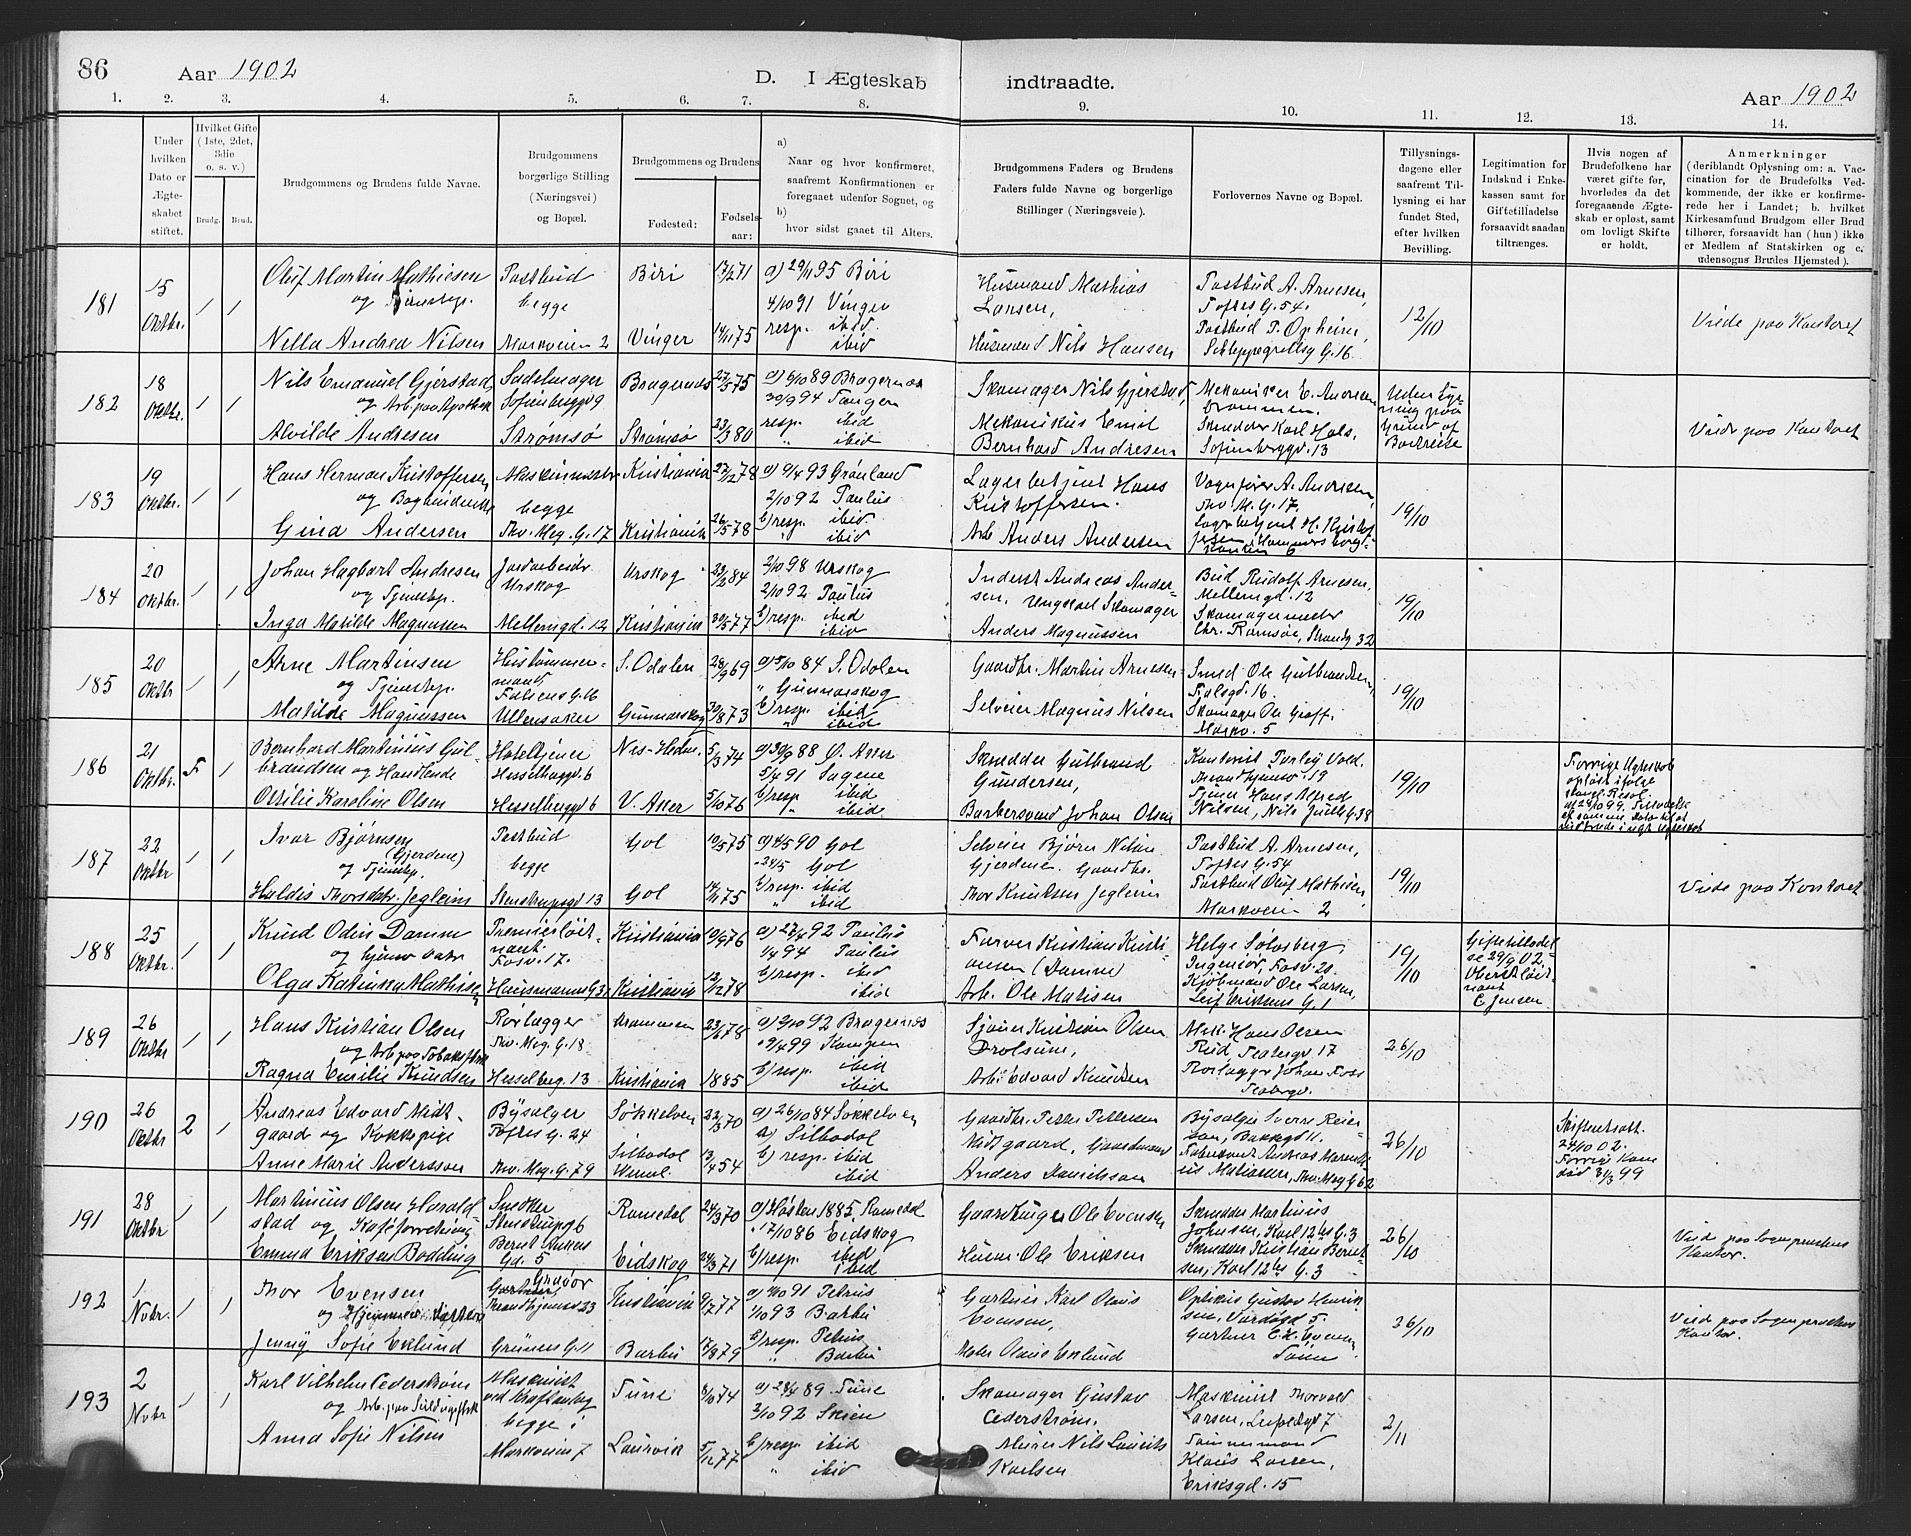 86
Aar 1902
D. I Ægteskab
indtraadte.
Aar 1902
1. 2. 3. 4. 5. 6. 7. 8. 9. 10. 11. 12. 13. 14.
Under
hvilken
Dato er
Ægte-
skabet
stiftet.
Hvilket Gifte
(1ste, 2det,
3die
o. s. v.)
Brudg. Brud.
Brudgommens og Brudens fulde Navne.
Brudgommens
borgerlige Stilling
(Næringsvei)
og Bopæl.
Brudgommens og Brudens
Fødested:
Fødsels-
aar:
a)
Naar og hvor konfirmeret,
saafremt Konfirmationen er
foregaaet udenfor Sognet, og
b)
hvor sidst gaaet til Alters.
Brudgommens Faders og Brudens
Faders fulde Navne og borgerlige
Stillinger (Næringsveie).
Forlovernes Navne og Bopæl.
Tillysnings-
dagene eller
saafremt Til-
lysning ei har
fundet Sted,
efter hvilken
Bevilling.
Legitimation for
Indskud i Enke-
kassen samt for
Giftetilladelse
forsaavidt saadan
tiltrænges.
Hvis nogen af
Brudefolkene har
været gifte før,
hvorledes da det
foregaaende Ægte-
skab er opløst, samt
om lovligt Skifte
er holdt.
Anmerkninger
(deriblandt Oplysning om: a. Vac-
cination for de Brudefolks Ved-
kommende, der ikke er konfirme-
rede her i Landet; b. hvilket
Kirkesamfund Brudgom eller Brud
tilhører, forsaavidt han (hun) ikke
er Medlem af Statskirken og c.
udensogns Brudes Hjemsted).
181
15
Oktbr.
/ /
Oluf Martin Mathiesen
og Tjenestep.
Nella Andrea Nilsen
Postbud
begge
Markveien 2
Biri
Vinger
17/2 71
14/11 75
a) 29/11 95 Biri
4/10 91 Vinger
resp. ibid.
ibid
Husmand Mathias
Larsen,
Husmand Nils Hansen
Postbud A. Arnesen,
Toftes G. 54.
Postbud P. Opheim,
12/10
Viede paa Kontoret
182
18
Oktbr.
/ /
Nils Emanuel Gjerstad
og Arb. paa Apothek
Alvilde Andresen
Sadelmager
Sofienbergg 9
Strømsø
Bragernes
Strømsø
27/5 75
23/3 80
a) 6/10 89 Bragernes
30/9 94 Tangen
resp. ibid
" ibid
Skomager Nils Gjerstad,
Mekanikus Emil
Bernhard Andresen
Mekaniker E. Andresen
Drammen.
Skrædder Karl Hals,
Sofienberggd. 13
Uden Lys-
ning paa
Grund af
Bortreise
Viede paa Kontoret
183
19
Oktbr.
/ /
Hans Herman Kristoffersen
og Bogbinderske
Gina Andersen
begge
Thv. Meg. G. 17
Kristiania
Kristiania
27/12 78
26/5 78
a) 9/4 93 Grønland
2/10 92 Paulus
b) resp. ibid.
" ibid
Lagerbetjent Hans
Kristoffersen.
Arb. Anders Andersen
Vognfører A. Andresen,
Thv. M. G. 17,
Lagerbetjent H. Kristof-
fersen, Hammersborg-
6
19/10
184
20
Oktbr.
/ /
Johan Hagbart Andresen
og Tjenestep.
Inga Matilde Magnussen
Jordarbeider
Urskog
Møllergd. 12
Urskog
Kristiania
23/2 84
30/5 77
2/10 98 Urskog
2/10 92 Paulus
b) resp. ibid
ibid
Inderst Andreas Ander-
sen, Ungkarl Skomager
Anders Magnussen
Bud Rudolf Arnesen,
Møllergd. 12
Skomagermester
Chr. Ramsøe, Strandg 32
19/10
185
20
Oktbr
/ /
Arne Martinsen
og Tjenestep.
Matilde Magnussen
Hustømmer-
mand,
Falsens G. 16
Ullensaker
S. Odalen
Gunnarskog
28/9 69
30/8 73
a) 5/10 84 S. Odalen
" Gunnarskog
b) resp. ibid
" ibid
Gaardbr. Martin Arnesen
Selveier Magnus Nilsen
Smed Ole Gulbrandsen,
Falsgd. 16.
Skomager Ole Graff,
Markv. 5
19/10
186
21
Oktbr.
F. /
Bernhard Martinius Gul-
brandsen og Handlende
Ottilie Karoline Olsen
Hoteltjener
Hesselbeggd. 6
Hesselberggd 6
Nes-Hedm.
V. Aker
5/3 74
5/10 76
a) 30/9 88 Ø. Aker
5/4 91 Sagene
b) resp. ibid
" ibid
Skrædder Gulbrand
Gundersen,
Barbersvend Johan Olsen
Kontorist Torleif Vold.
Trondhjemsv. 19
Tjener Hans Alfred
Nilsen, Nils Juels G. 38
19/10
Forrige Ægteskab
opløst ifølge
Resol.
187
22
Oktbr
/ /
Ivar Bjørnsen
(Gjerdene)
og Tjenestep.
Haldis Thorsdatr. Jegleim
Postbud
begge
Stenstrupsgd 13
Gol
Gol
10/5 75
14/1 75
a) 4/5 90 Gol
24/5 Gol
b) resp. ibid
" ibid
Selveier Bjørn Nilsen
Gjerdene. Gaardbr.
Thor Knutsen Jegleim
Postbud A. Arnesen,
Toftes G. 54
Postbud Oluf Mathisen,
Markveien 2
19/10
Viede paa Kontoret
188
25
Oktbr.
/ /
Knud Odin Damm
og hjemv. Datr
Olga Katinka Mathisen
Premierløit-
nant.
Fosv. 17.
Hausmanns G 3
Kristiania
Kristiania
10/9 76
12/12 78
a) 27/4 92 Paulus
1/4 94 Paulus
b) resp. ibid
ibid
Farver Kristian Kristi-
ansen (Damm)
Arb. Ole Matisen
Helge Sølvsberg,
Ingeniør, Fosv. 20.
Kjøbmand Ole Larsen,
Leif Eriksens G. 1
19/10
Giftetilladel-
se 29/9 02.
Oberstløit-
nant
C. Jensen
189
26
Oktbr
/ /
Hans Kristian Olsen
og Arb. paa Tobaksfabrik
Ragna Emilie Knudsen
Rørlægger
Thv. Meg. G. 18
Hesselberg. 13
Drammen
Kristiania
23/6 78
1885
a) 2/10 92 Bragernes
" 9/4 99 Kampen
b) resp. ibid
ibid
Sjøm. Kristian Olsen
Drolsum,
Arb. Edvard Knudsen
Mek. Hans Olsen
Rud, Toftesgd. 17
Rørlægger Johan Foss
26/10
190
26
Oktbr
2 /
Andreas Edvard Midt-
gaard og Kokkepige
Anne Marie Andersson
Bysælger
Toftes G. 24
Thv. Meg. G. 79
Søkkelven
Silbodal
Werml.
22/3 70
13/4 54
a) 26/10 84 Søkkelven
a) Silbodal
b) resp. ibid
ibid
Gaardbr. Petter Pettersen
Midtgaard, Gaardmand
Anders Danielsson
Bysælger Sverre Reier-
sen, Bakkegd 11.
Thv. Meg G 62
26/10
Skifteattest.
24/10 02.
Forrige Kone
død 31/3 99
191
28
Oktbr
/ /
Martinius Olsen Harald-
stad og Kaféforretning
Emma Eriksen Bodding
Snedker
Stenstrupg 6
Bernt Ankers
Gd. 5
Romedal
Eidskog
24/3 70
24/3 71
a) Høsten 1885, Romedal
" 17/10 86 Eidskog
b) resp. ibid
ibid
Gaardbruger Ole Evensen
Husm. Ole Eriksen
Skrædder Martinius
Johnsen, Karl 12tes G. 3
Skrædder Kristian Bernt-
sen, Karl 12tes G. 3
26/10
Viede paa Sognepræstens
Kontor.
192
1
Novbr.
/ /
Thor Evensen
og Hjemmeværende
Jenny Sofie Eklund
Gravør
Trondhjemsv 23
Grüners G. 11
Kristiania
Barbu
9/2 77
17/8 79
a) 4/10 91 Petrus
1/10 93 Barbu
b) resp. Petrus
" Barbu
Gartner Karl Olaus
Evensen,
Optikus Gustav Henrik-
sen, Vardøgd 5.
Gartner E. K. Evensen
Tøien.
26/10
Viede paa Sognepræstens
Kontor.
193
2
Novbr
/ /
Karl Vilhelm Cederstrøm
og
Anna Sofie Nilsen
Maskinist
begge i
Markveien 7
Tune
Laurvik
8/10 74
5/12 77
a) 24/4 89 Tune
2/10 92 Skien
b) resp. ibid
" ibid
Skomager Gustav
Cederstrøm.
Murer Nils Laurits
Karlsen
Maskinist Thorvald
Larsen, Leirfaldsgd 7
Tømmermand
Klaus Larsen,
Eriksgd. 15
2/11